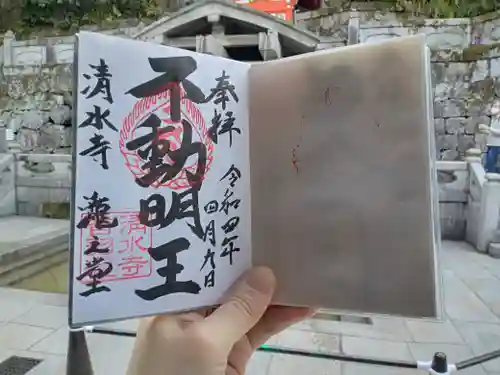 奉拝 令和四年
四月九日
不動明王
清水寺 瀧之堂
清水寺